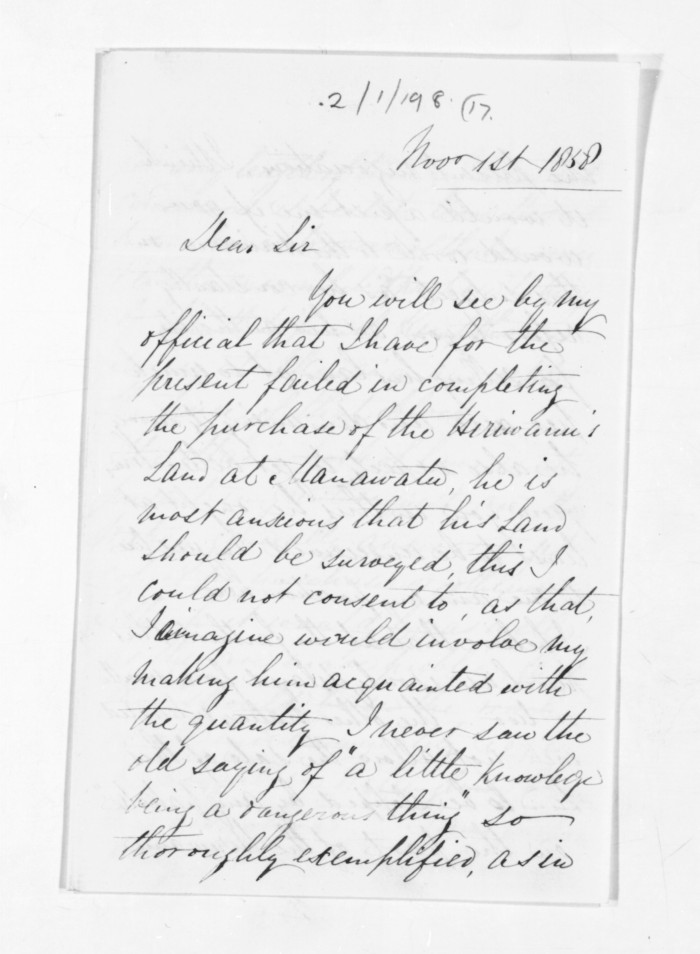 2/1/198 (17.
Novr 1st 1858
Dear Sir
You will see by my
official that I have for the
present failed in completing
the purchase of the Hiriwanu's
Land at Manawatu, he is
most anxious that his Land
should be surveyed, this I
could not consent to, as that,
I imagine would involve my
making him acquainted with
the quantity I never saw the
old saying of "a little knowlege
being a dangerous thing" so
thoroughly exemplified, as in